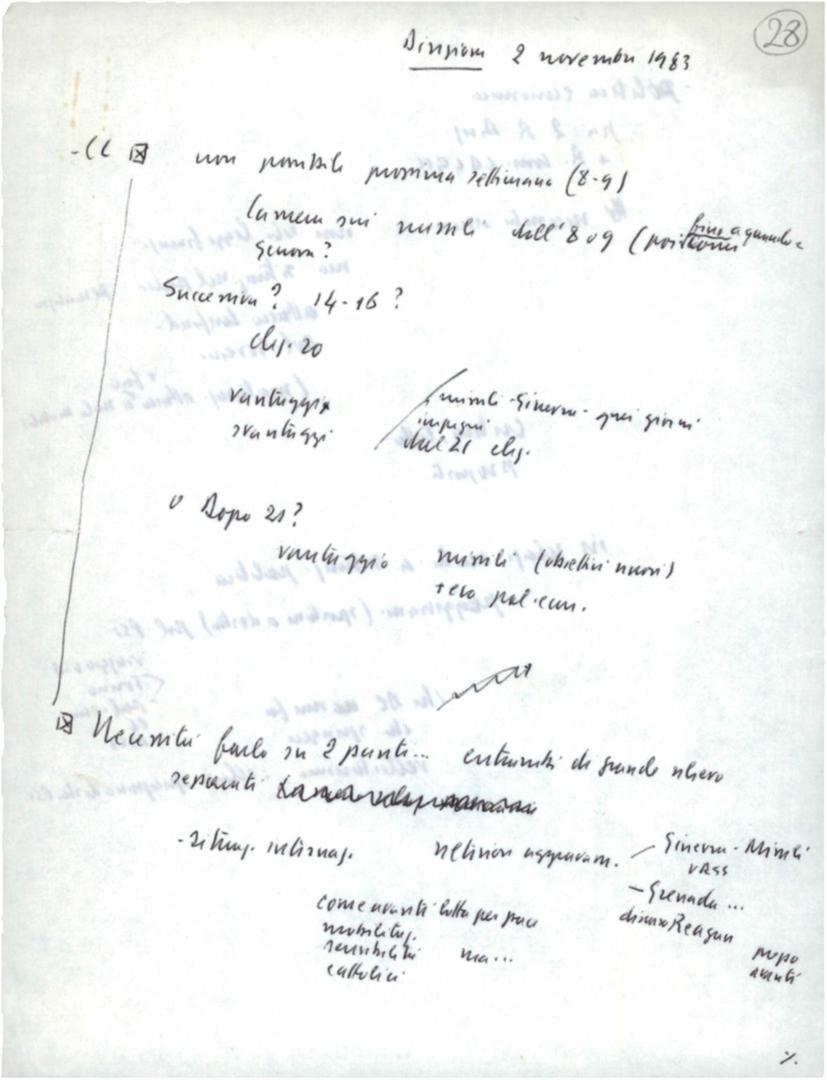 28
Direzione 2 novembre 1983
-CC ☒ non possibile prossima settimana (8-9)
Camera sui missili dall'8 o 9 (posizioni fino a quando =
Genova?
Successiva? 14-16?
Chj. 20
vantaggi
svantaggi
missili - Ginevra - quei giorni
impegni
dal 21 chj.
o Dopo 21?
vantaggio missili (obiettivi nuovi)
pol-econ.
☒ Necessità farlo su 2 punti... entrambi di grande rilievo
separati
- Situaz. internaz. aggravam. - Ginevra - Missili
URSS
- Grenada...
discorso Reagan
come avanti lotta per pace
mobilitaz.
sensibilità ma...
cattolici
papa
avanti
%